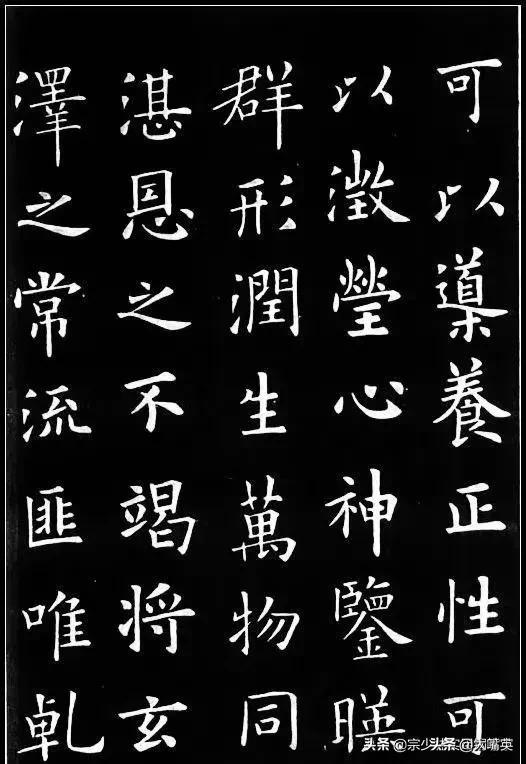 可以導養正性可
以澂瑩心神鑒暎
群形潤生萬物同
湛恩之不竭将玄
澤之常流匪唯乹
头条 @宗少 头条